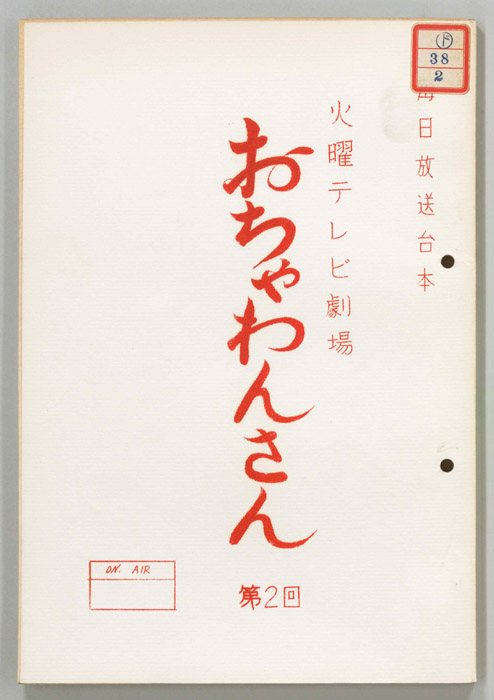 ド
38
2
毎日放送台本
火曜テレビ劇場
おちゃわんさん
第2回
ON. AIR